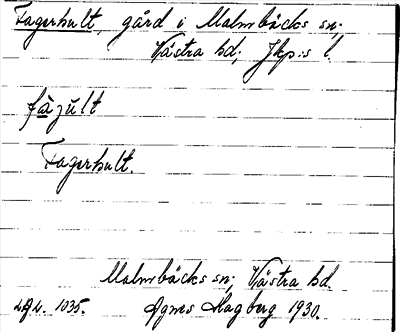 Fagerhult, gård i Malmbäcks sn;
Västra hd; Jkp:s l.
fàjult
Fagerhult.
Malmbäcks sn; Västra hd.
1035. Agnes Hagberg 1930.